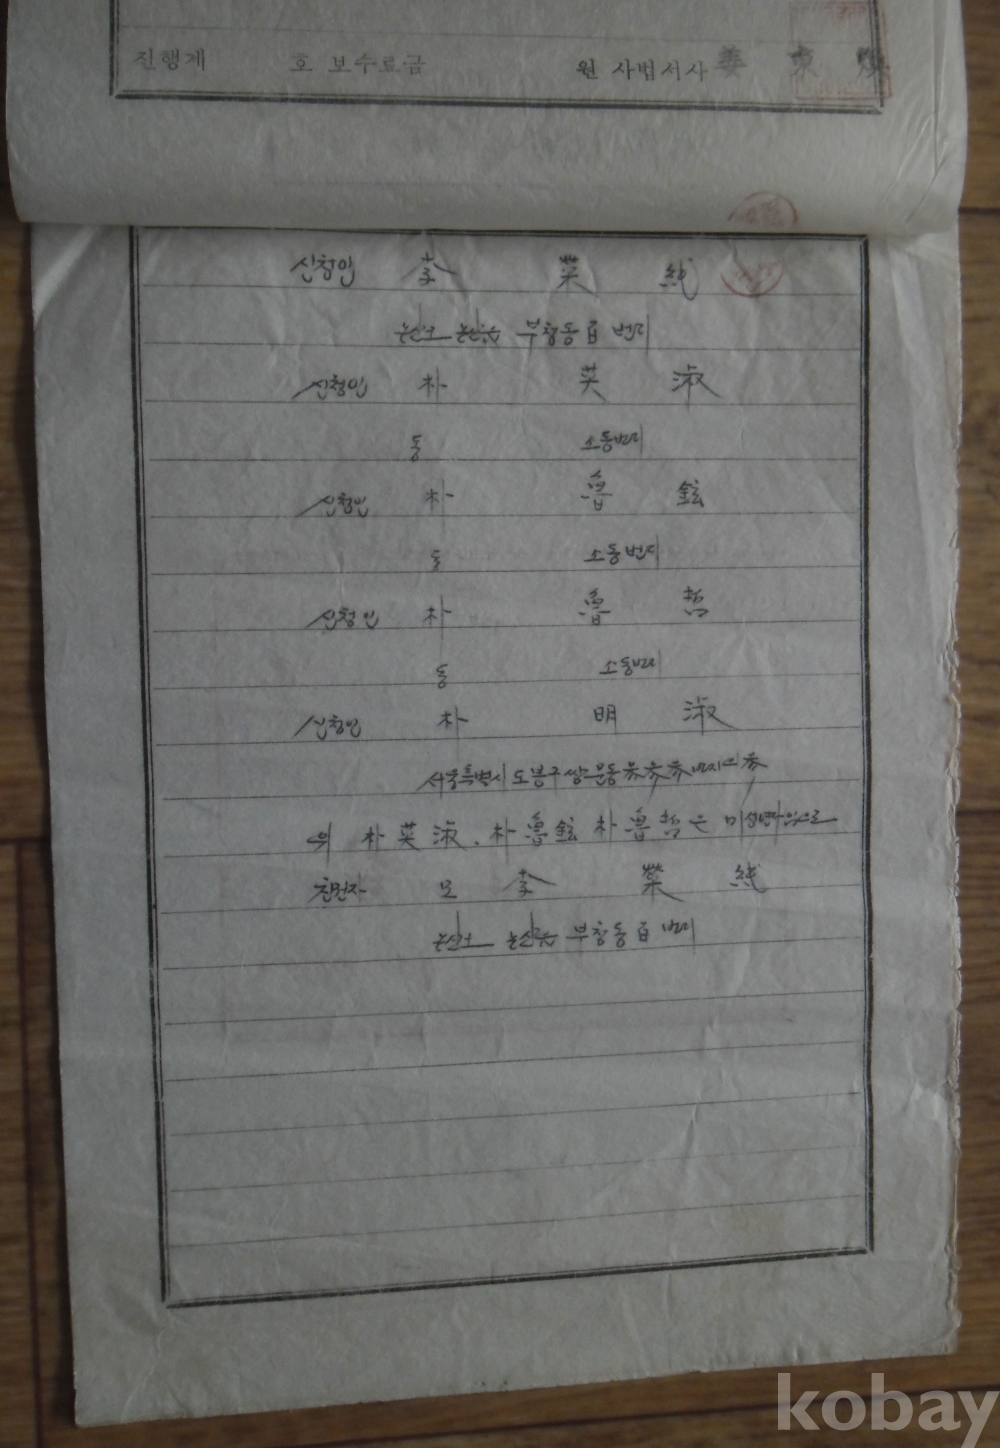 진행계 호 보수료금 원 사법서사 姜東
신청인 李 榮 純
논산군 논산읍 부창동 百번지
신청인 朴 英 淑
동 소동번지
신청인 朴 魯 鉉
동 소동번지
신청인 朴 魯 哲
동 소동번지
신청인 朴 明 淑
서울특별시 도봉구 쌍문동
위 朴英淑、朴魯鉉 朴魯哲은 미성년자임으로
친권자 모 李 榮 純
논산군 논산읍 부창동 百번지
kobay